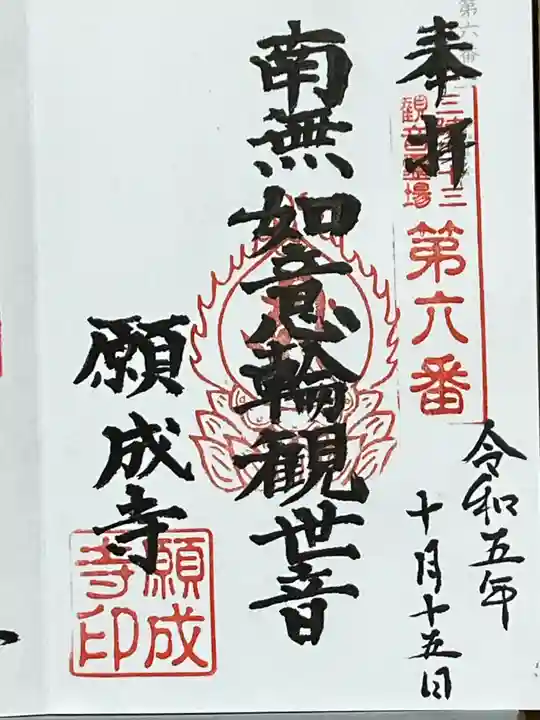 奉拝
三陸三十三
観音霊場
第六番
令和五年
十月十五日
南無如意輪観世音
願成寺
願成
寺印